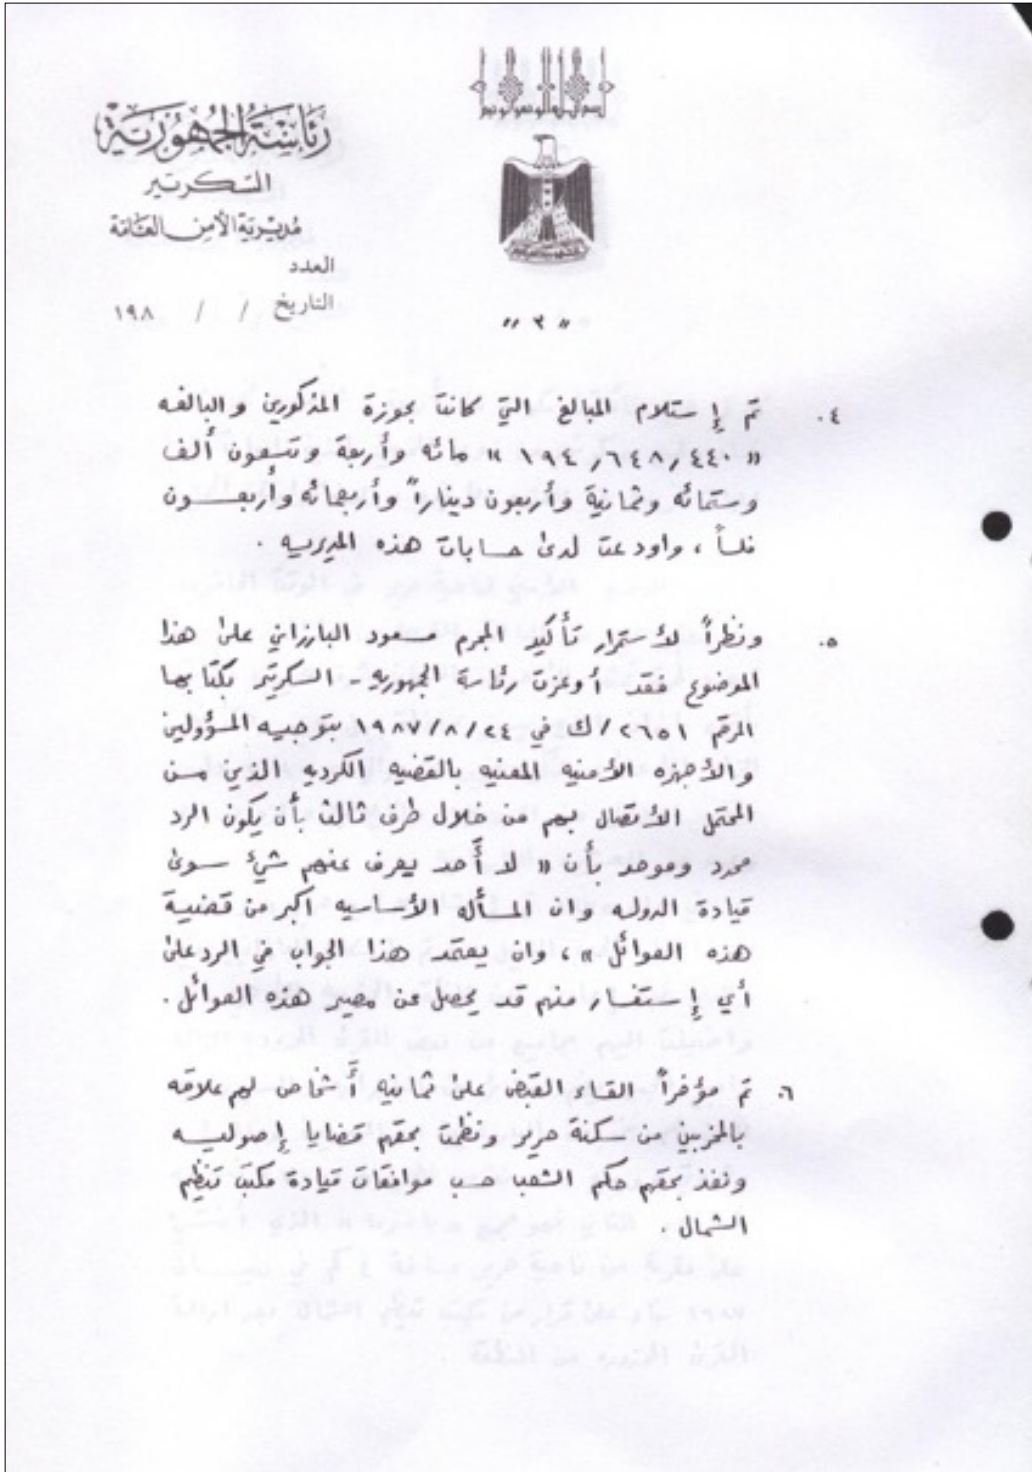 بسم الله الرحمن الرحيم
رئاسة الجمهورية
السكرتير
مديرية الأمن العامة
العدد
التاريخ / / ١٩٨
« ٣ »
٤. تم إستلام المبالغ التي كانت بحوزة المذكورين والبالغه
« ١٩٤/٦٤٨/٤٤٠ » مائه وأربعة وتسعون ألف
وستمائه وثمانية وأربعون ديناراً وأربعمائه وأربعـــون
فلساً ، واودعت لدى حسابات هذه المديريه .
٥. ونظراً لأستمرار تأكيد المجرم مسعود البارزاني على هذا
الموضوع فقد أوعزت رئاسة الجمهوريه - السكرتير بكتابها
المرقم ٢٦٥١/ك في ١٩٨٧/٨/٢٤ بتوجيه المسؤولين
والأجهزه الأمنيه المعنيه بالقضيه الكرديه الذين مـن
المحتمل الأتصال بهم من خلال طرف ثالث بأن يكون الرد
محدد وموحد بأن « لا أحد يعرف عنهم شيء سـوى
قيادة الدوله وان المسأله الأساسيه اكبر من قضيـة
هذه العوائل » ، وان يعتمد هذا الجواب في الرد على
أي إستفسار منهم قد يحصل عن مصير هذه العوائل .
٦. تم مؤخراً القاء القبض على ثمانيه أشخاص لهم علاقه
بالمخربين من سكنة حرير ونظمت بحقهم قضايا إصوليــه
ونفذ بحقهم حكم الشعب حسب موافقات قيادة مكتب تنظيم
الشمال .